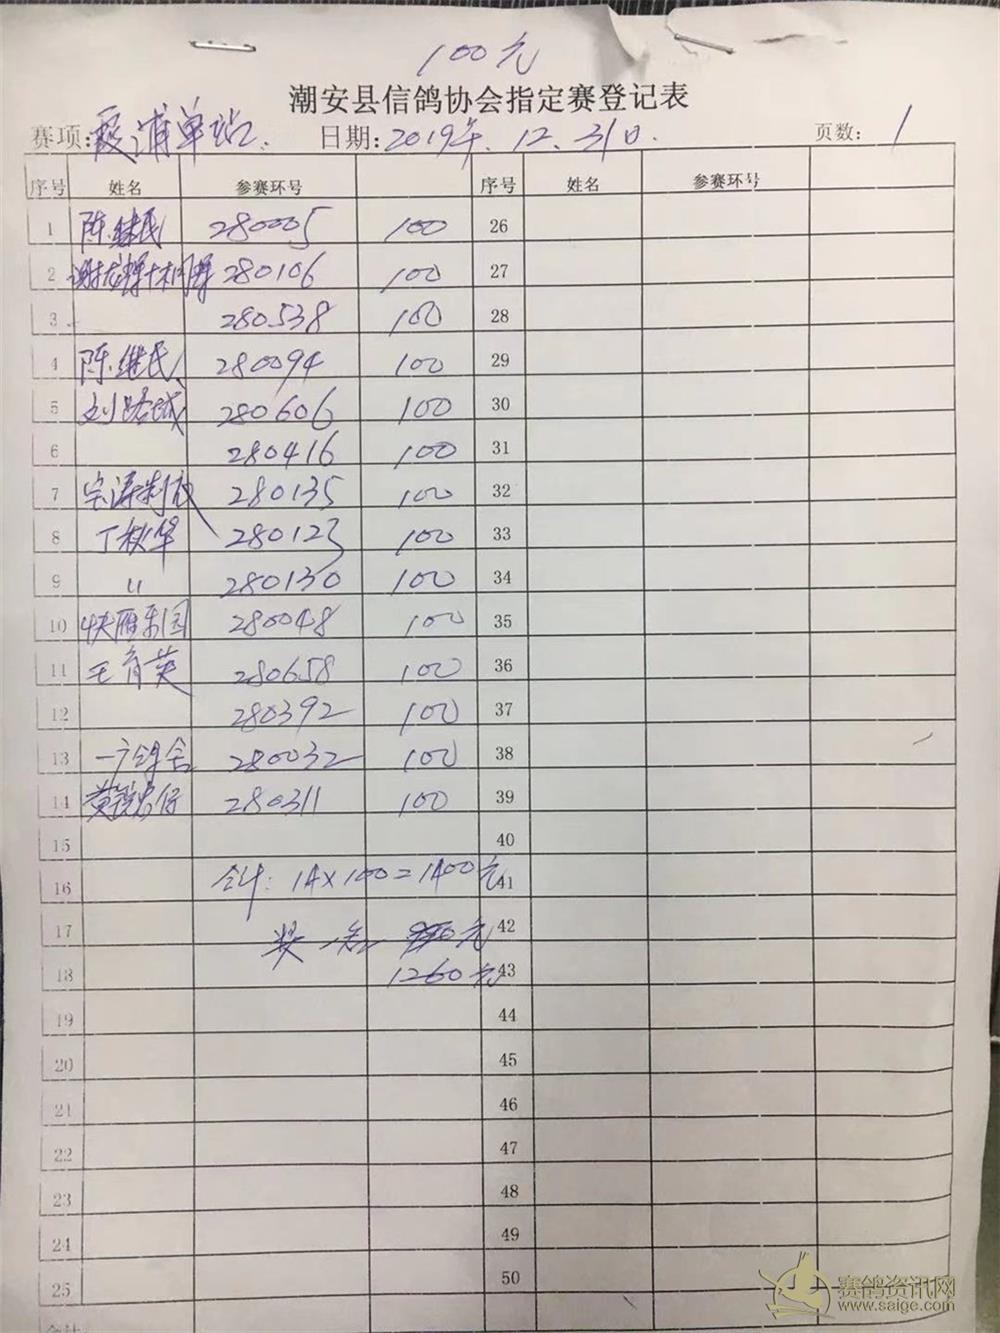 100元
潮安县信鸽协会指定赛登记表
赛项: 霞浦单站. 日期: 2019年. 12. 31日. 页数: 1
序号 姓名 参赛环号 序号 姓名 参赛环号
1 陈继民 280005 100 26
2 280106 100 27
3 280538 100 28
4 陈继民 280094 100 29
5 280606 100 30
6 280416 100 31
7 280135 100 32
8 丁秋华 280123 100 33
9 〃 280130 100 34
10 280048 100 35
11 王育英 280658 100 36
12 280392 100 37
13 一广鸽舍 280032 100 38
14 280311 100 39
15 40
16 合计: 14×100=1400元 41
17 奖一名 元 42
18 1260元 43
19 44
20 45
21 46
22 47
23 48
24 49
25 50
合计
赛鸽资讯网
www.saige.com